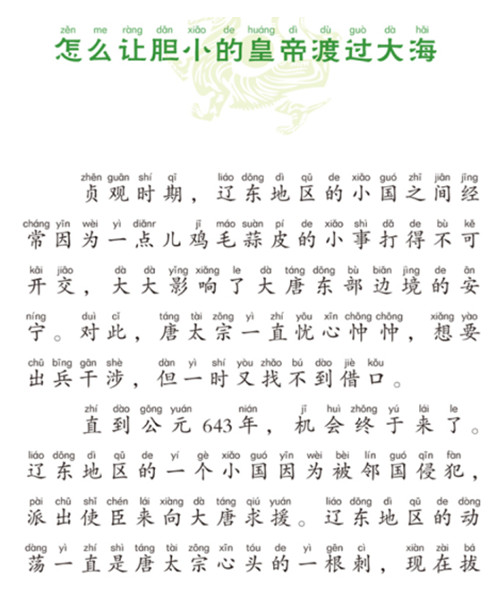 zěn me ràng dǎn xiǎo de huáng dì dù guò dà hǎi
怎么让胆小的皇帝渡过大海
zhēn guàn shí qī liáo dōng dì qū de xiǎo guó zhī jiān jīng
贞观时期，辽东地区的小国之间经
cháng yīn wèi yì diǎnr jī máo suàn pí de xiǎo shì dǎ de bù kě
常因为一点儿鸡毛蒜皮的小事打得不可
kāi jiāo dà dà yǐng xiǎng le dà táng dōng bù biān jìng de ān
开交，大大影响了大唐东部边境的安
níng duì cǐ táng tài zōng yì zhí yōu xīn chōng chōng xiǎng yào
宁。对此，唐太宗一直忧心忡忡，想要
chū bīng gān shè dàn yì shí yòu zhǎo bú dào jiè kǒu
出兵干涉，但一时又找不到借口。
zhí dào gōng yuán nián jī huì zhōng yú lái le
直到公元643年，机会终于来了。
liáo dōng dì qū de yí gè xiǎo guó yīn wèi bèi lín guó qīn fàn
辽东地区的一个小国因为被邻国侵犯，
pài chū shǐ chén lái xiàng dà táng qiú yuán liáo dōng dì qū de dòng
派出使臣来向大唐求援。辽东地区的动
dàng yì zhí shì táng tài zōng xīn tóu de yì gēn cì xiàn zài bá
荡一直是唐太宗心头的一根刺，现在拔